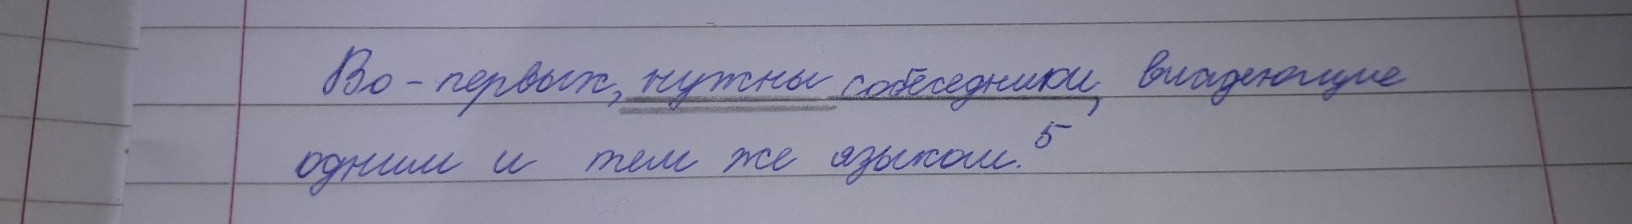 Во-первых, нужны собеседники, владеющие
одним и тем же языком.⁵